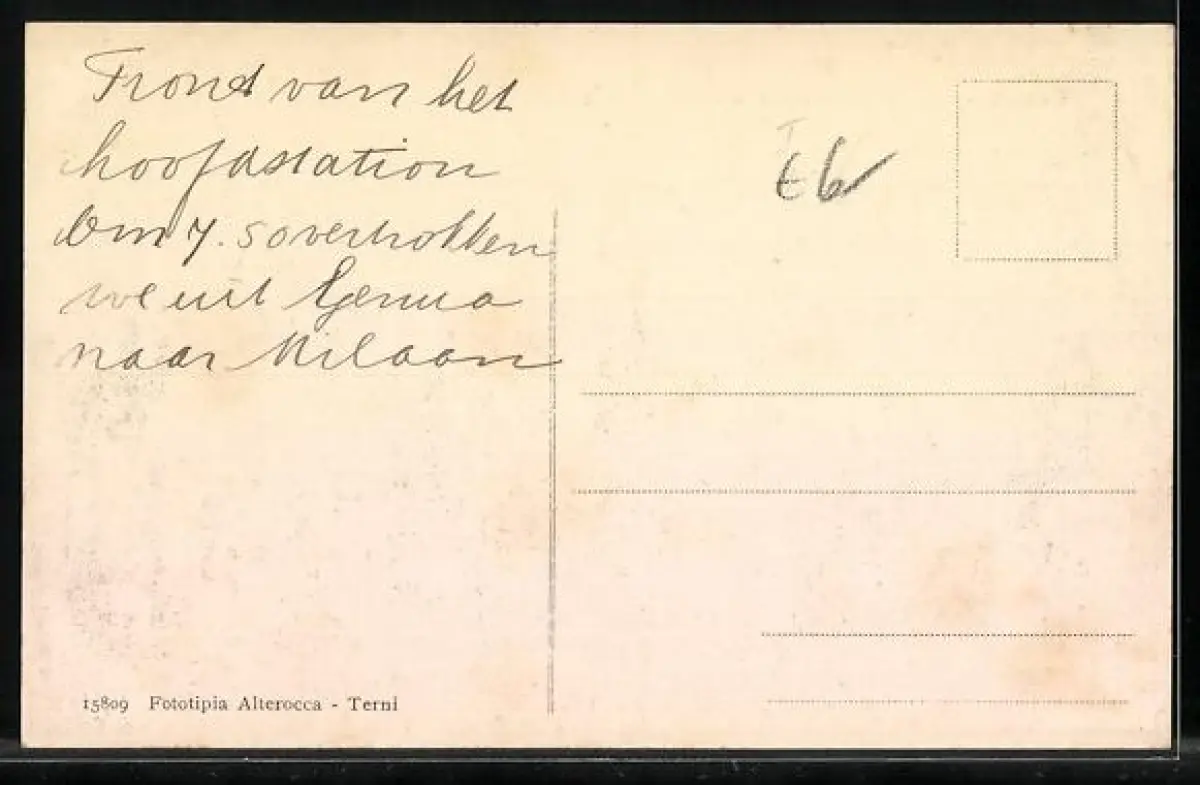 Front van het
hoofdstation
Om 7.50 vertrokken
we uit Genua
naar Milaan
E6
15809 Fototipia Alterocca - Terni